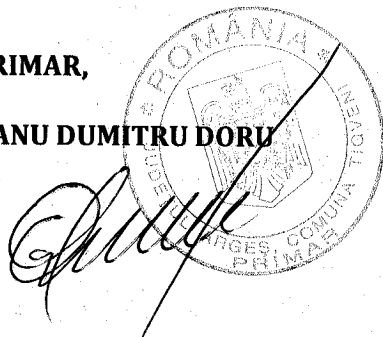 RIMAR,
ANU DUMITRU DORU
* ROMÂNIA *
ARGEȘ COMUNA TIGVENI
PRIMAR